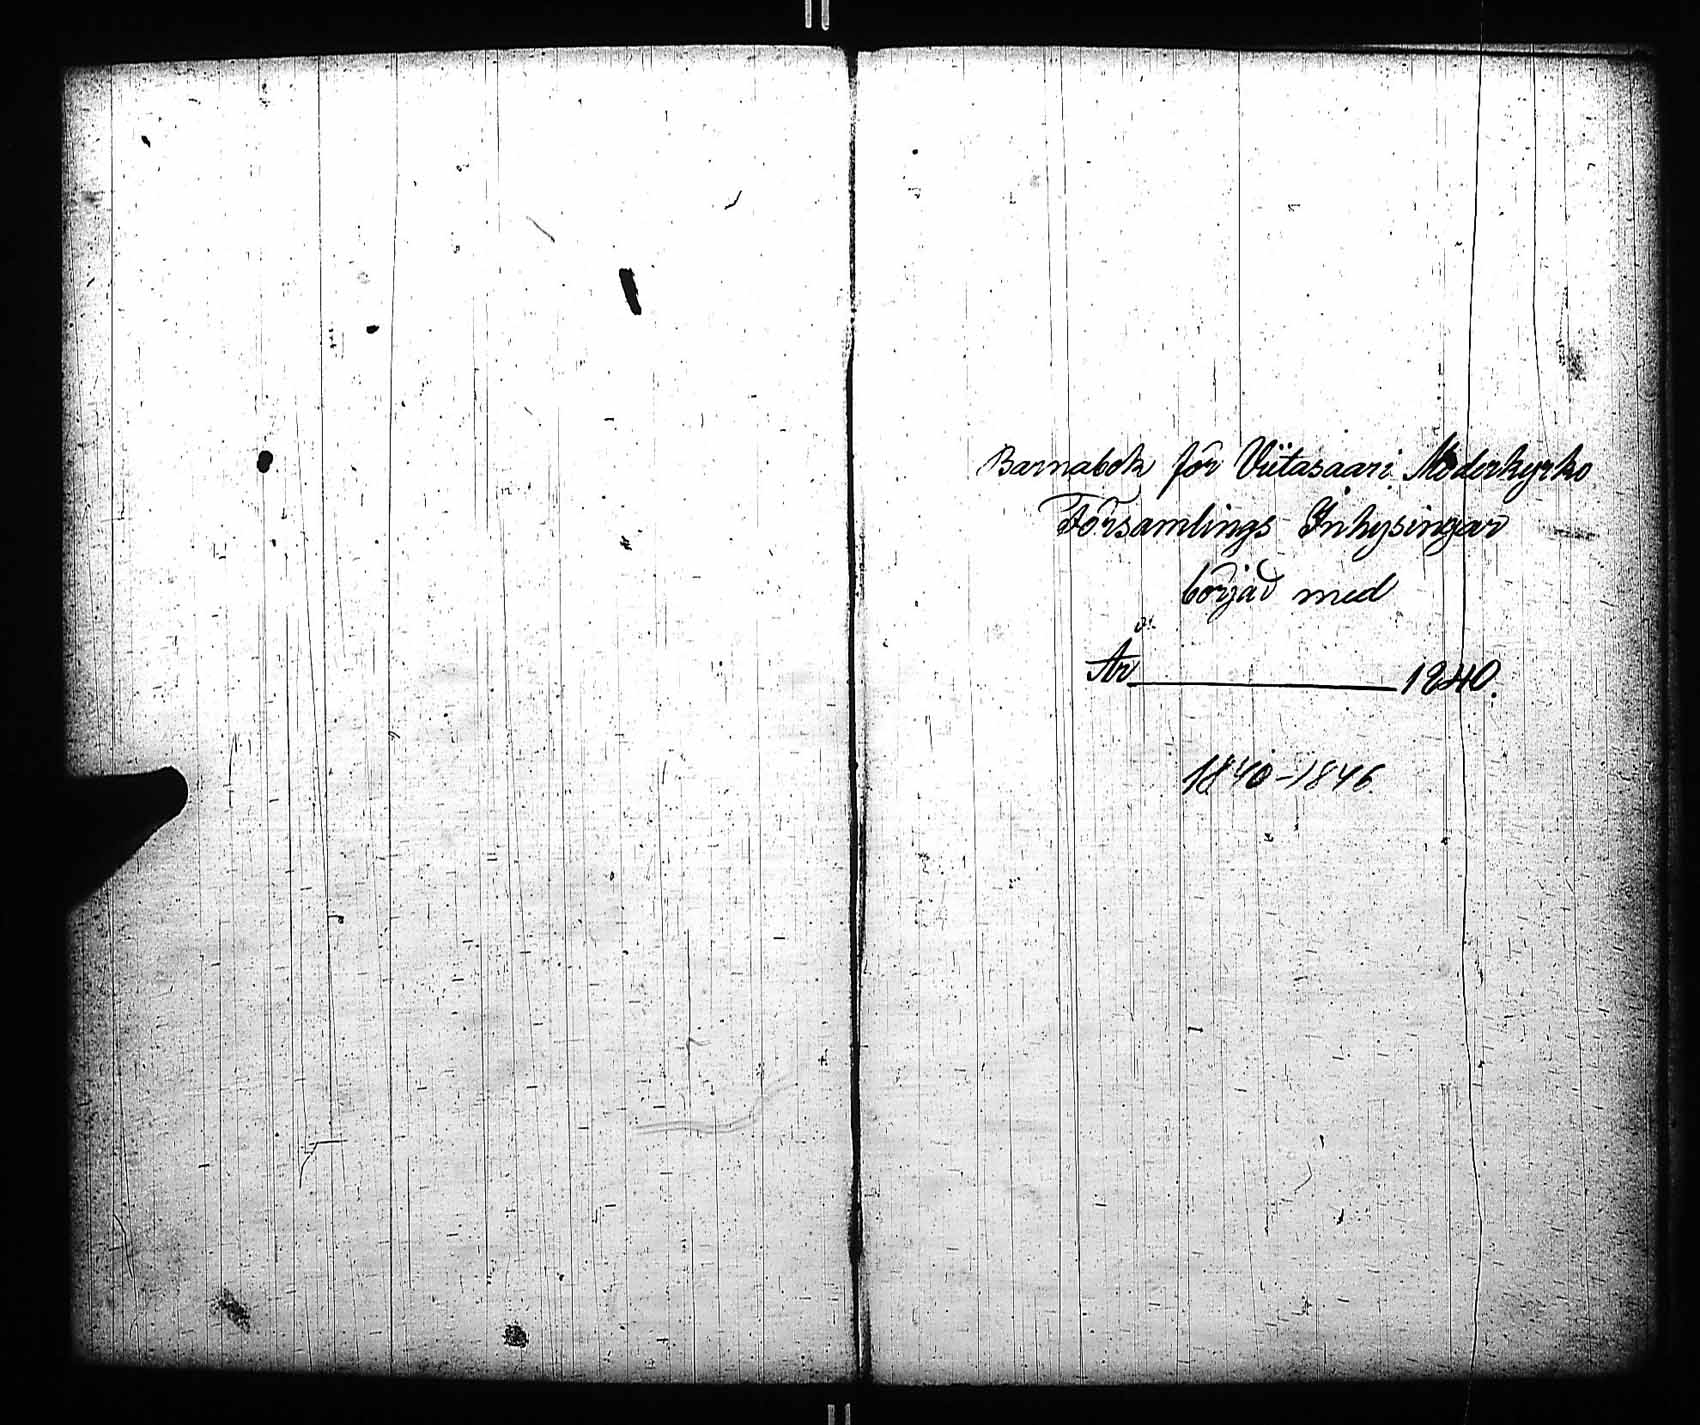 Barnabok för Viitasaari Moderkyrko
Församlings Inhysingar
börjad med
År 1840.
1840-1846.